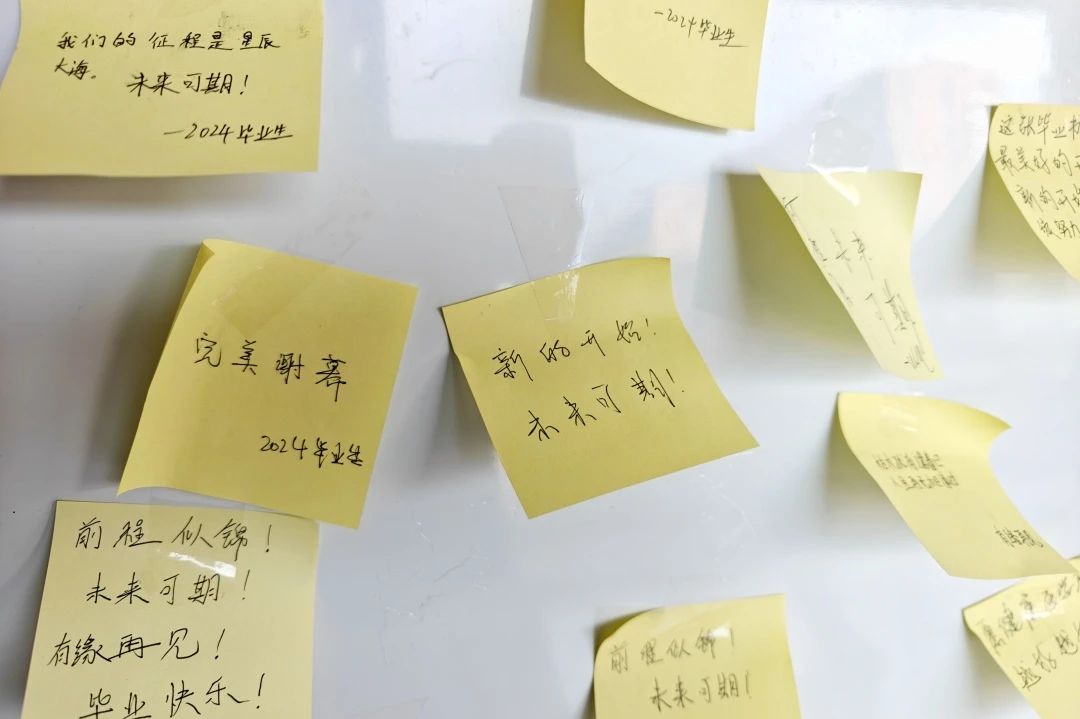 我们的征程是星辰
大海。
未来可期！
—2024毕业生
—2024毕业生
这张毕业
最美好的
新的开始
完美谢幕
2024毕业生
新的开始！
未来可期！
未来
可期
前程似锦！
未来可期！
有缘再见！
毕业快乐！
有缘再见
前程似锦！
未来可期！